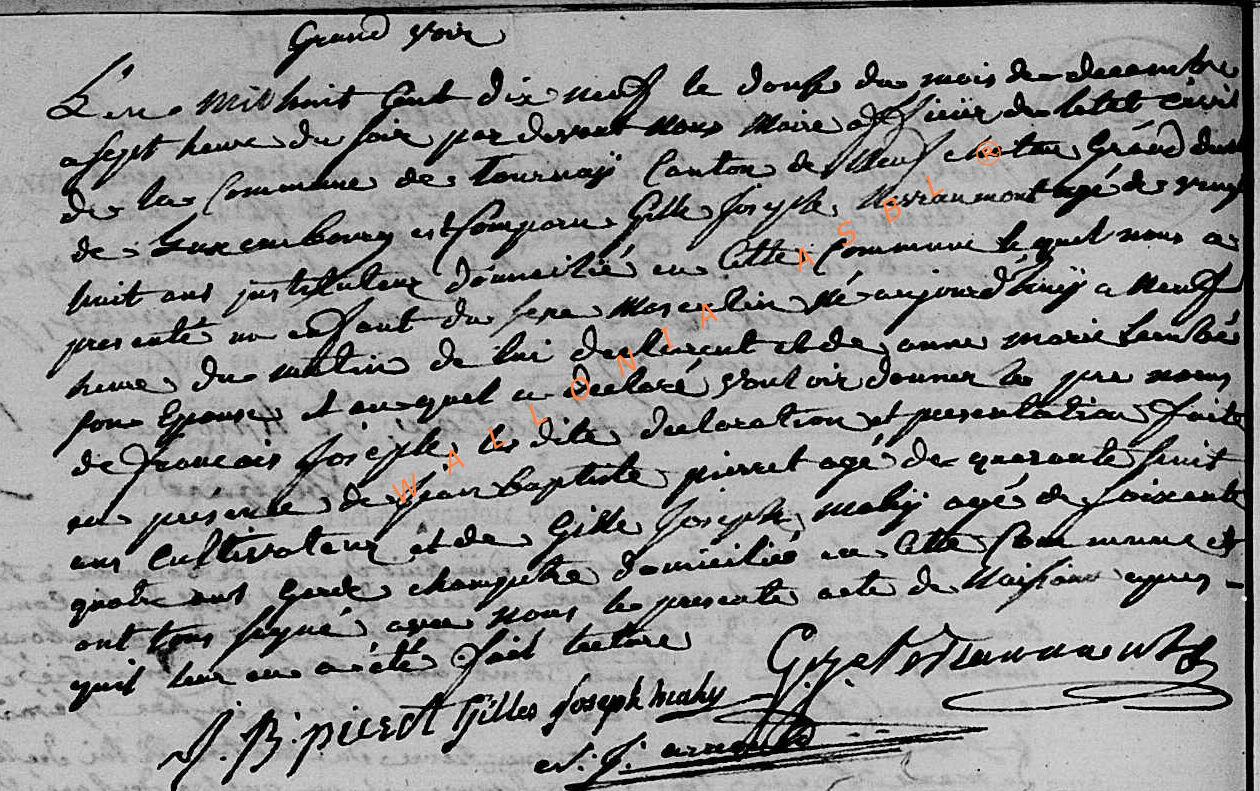 Grand voir
L'en mil huit Cent dix neuf le douse du mois de decembre
a sept heure du soir par devant nous Maire officiér de letat civil
de la Commune de tournaÿ Canton de Neufchateau Grand duché
de Luxembourg est Comparu Gille Joseph agé de vingt
huit ans jnstituteur domicilié en Cette Commune lequel nous a
presenté un enfant du sexe Masculin Né aujourd'huÿ a Neuf
heure du matin de lui declarent et de anne marie
son Epouse et au quel il a declaré vouloir donner les pre noms
de francois Joséph les dite declaration et presentation faite
en presence de jean baptiste pierret agé de quarante huit
ans Cultivateur et de Gille Joseph mahÿ agé de soixante
quatre ans garde champetre domicilié en Cette Commune et
ont tous signé avec nous le presente acte de Naissance apres -
quil leur en a été fait lecture
J. B. pieret Gilles Joseph mahy
WALLONIA ASBL ®